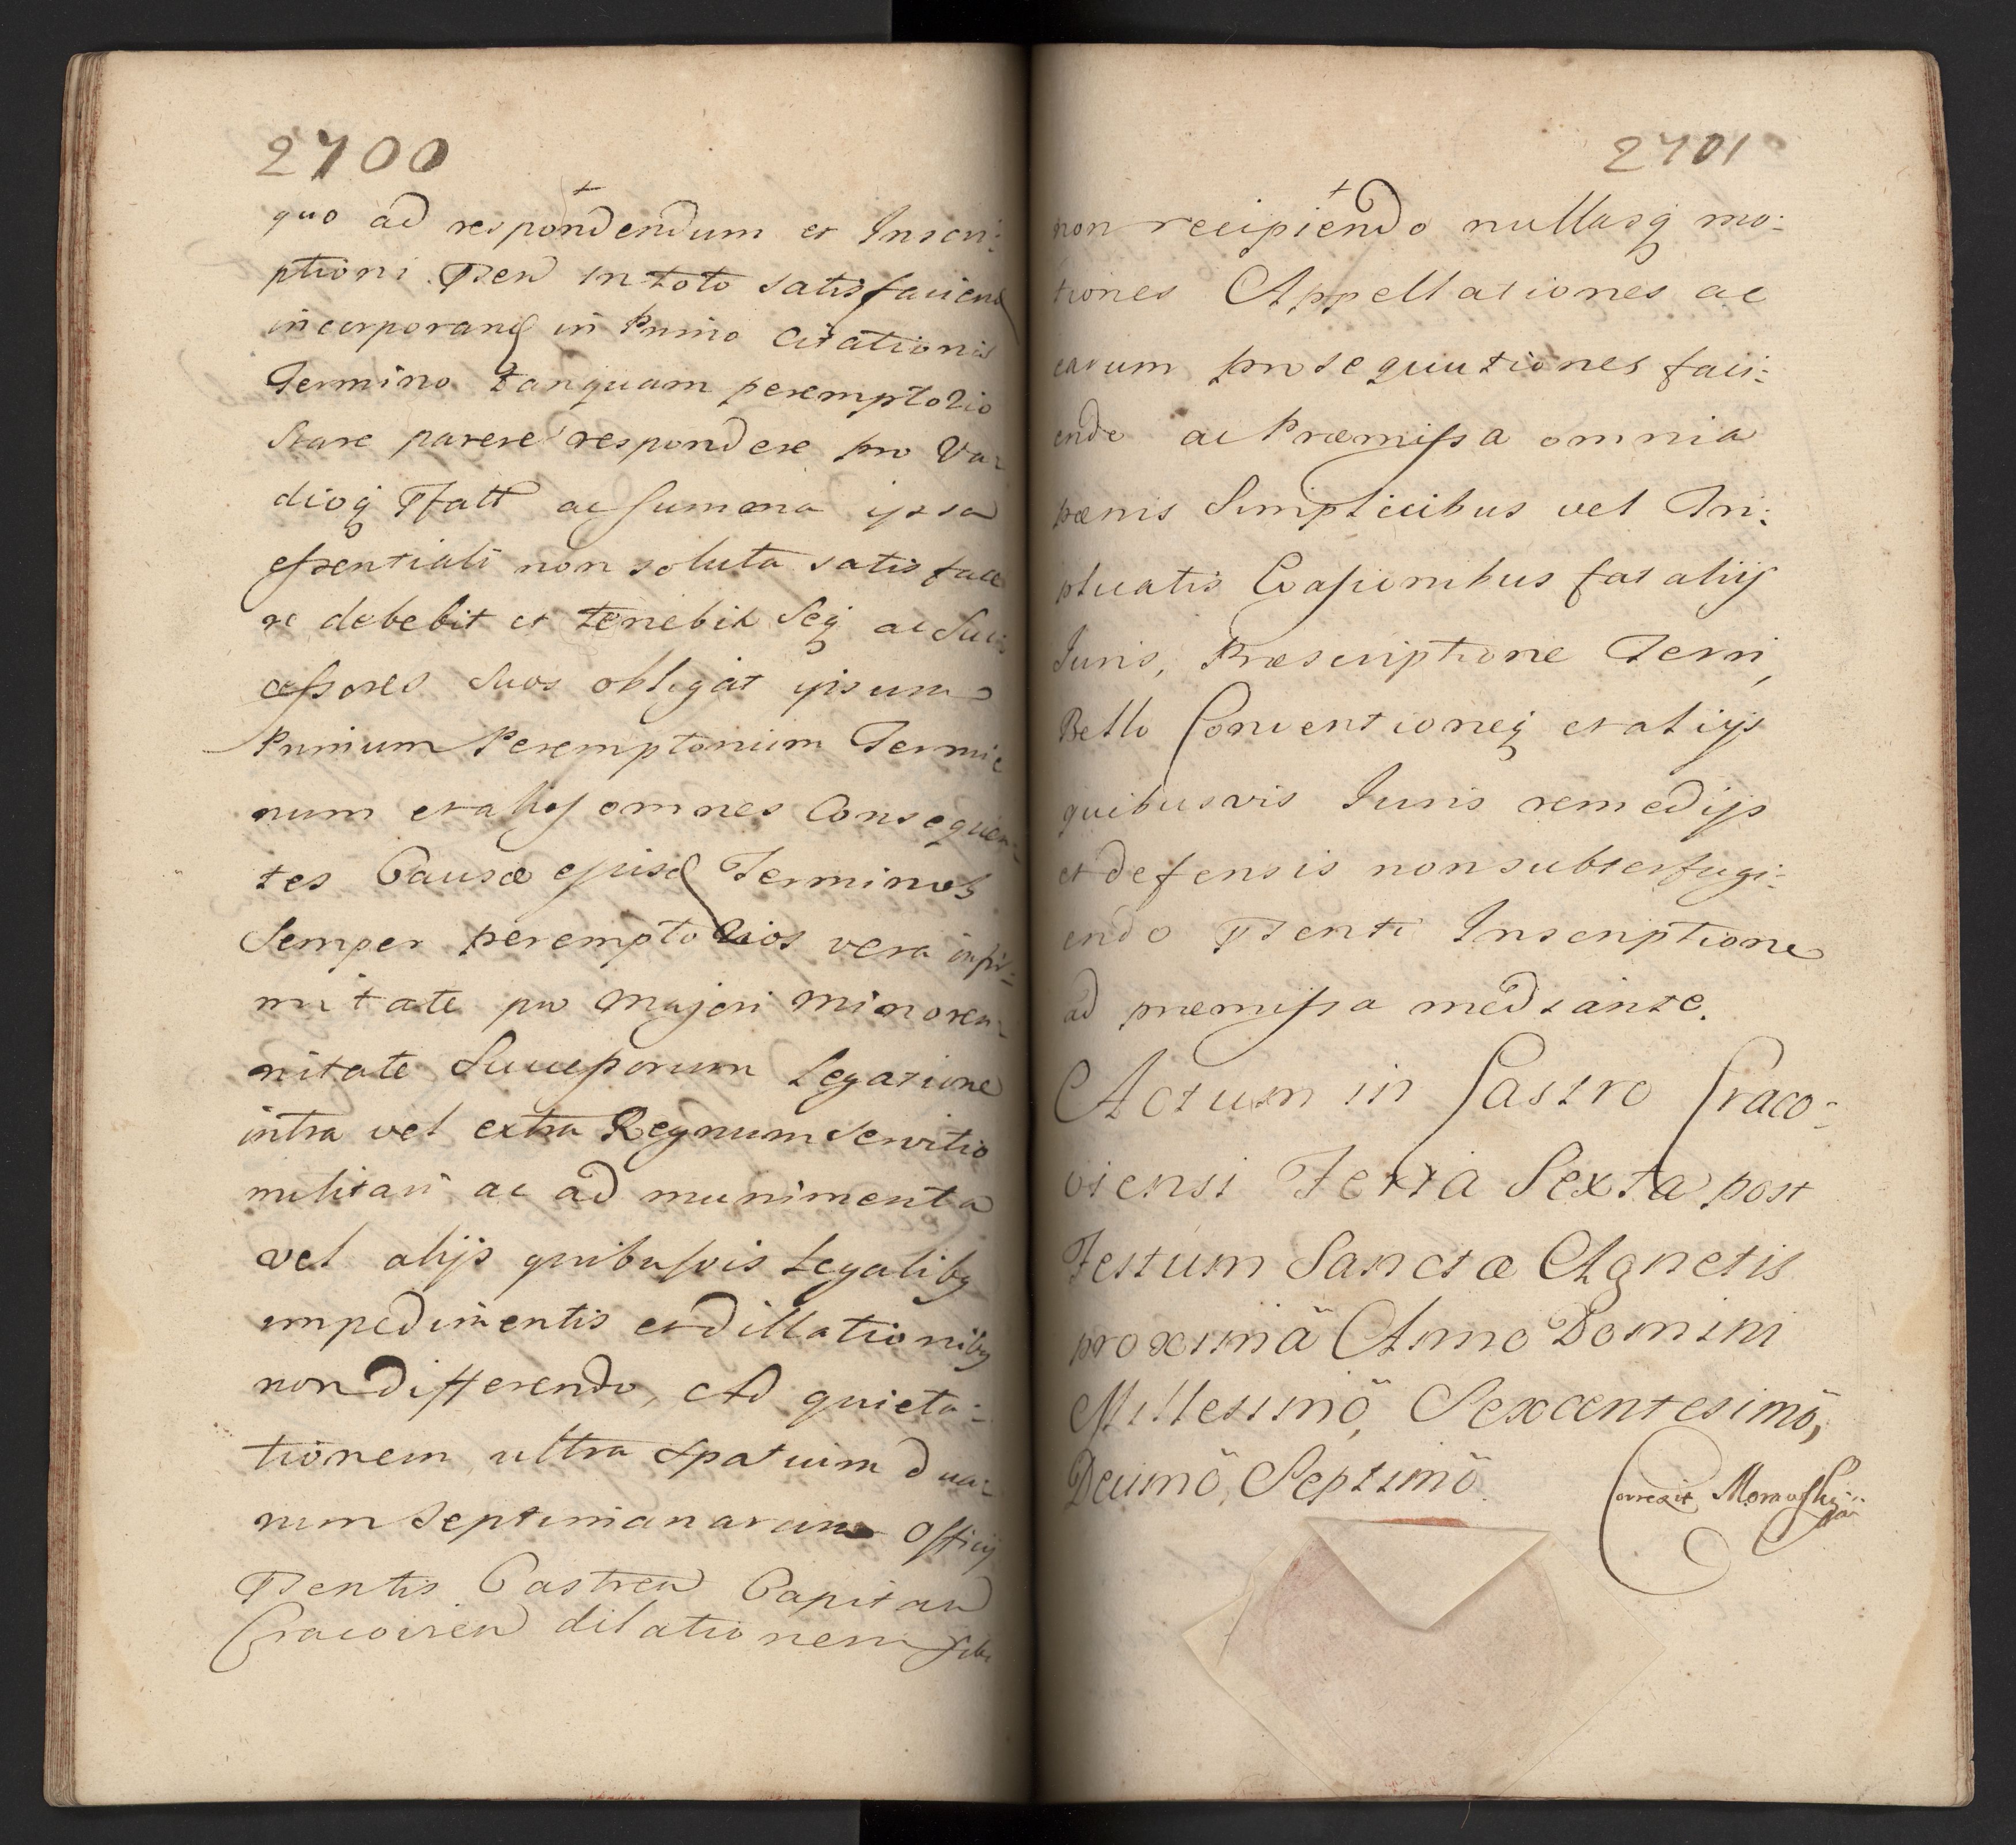 2700
quo ad respondendum et Inscri:
ptioni Pñen in toto satisfaciend
incorporand in Primo Citationis
Termino tanquam peremptorio
Stare parere respondere pro Va-
dioq Pfatt ac summa ipsa
essentiali non soluta satisface
re debebit et tenebit Seq ac Suc
cessores Suos obligat ipsum
Primum Peremptorium Termi
num et alios omnes Consequen:
tes Causæ ejusd Terminos
Semper peremptorios vera infir:
mitate pro Majori Minoren-
nitate Successorum Legatione
intra vel extra Regnum Servitio
militari ac ad munimenta
vel alijs quibusvis Legalibq
impedimentis et dillationibq
non differendo, Ad quieta:
tionem ultra Spatium dua-
rum Septimanarum Officij
Pñentis Castren Capitan
Cracovien dilationem sibi
2701
non recipiendo nullasq mo:
tiones Appellationes ac
earum prosequutiones faci:
endo ac Præmissa omnia
pœnis Simplicibus vel Tri:
plicatis Evasionibus fatalijs
Juris, Præscriptione Terri,
Bello Conventioneq et alijs
quibusvis Juris remedijs
et defensis non subterfugi:
endo Pñenti Inscriptione
ad præmissa mediante.
Actum in Castro Craco:
viensi Feria Sexta post
Festum Sanctæ Agnetis
proximâ Anno Domini
Millesimô, Sexcentesimô,
Decimô, Septimô.
Correxit